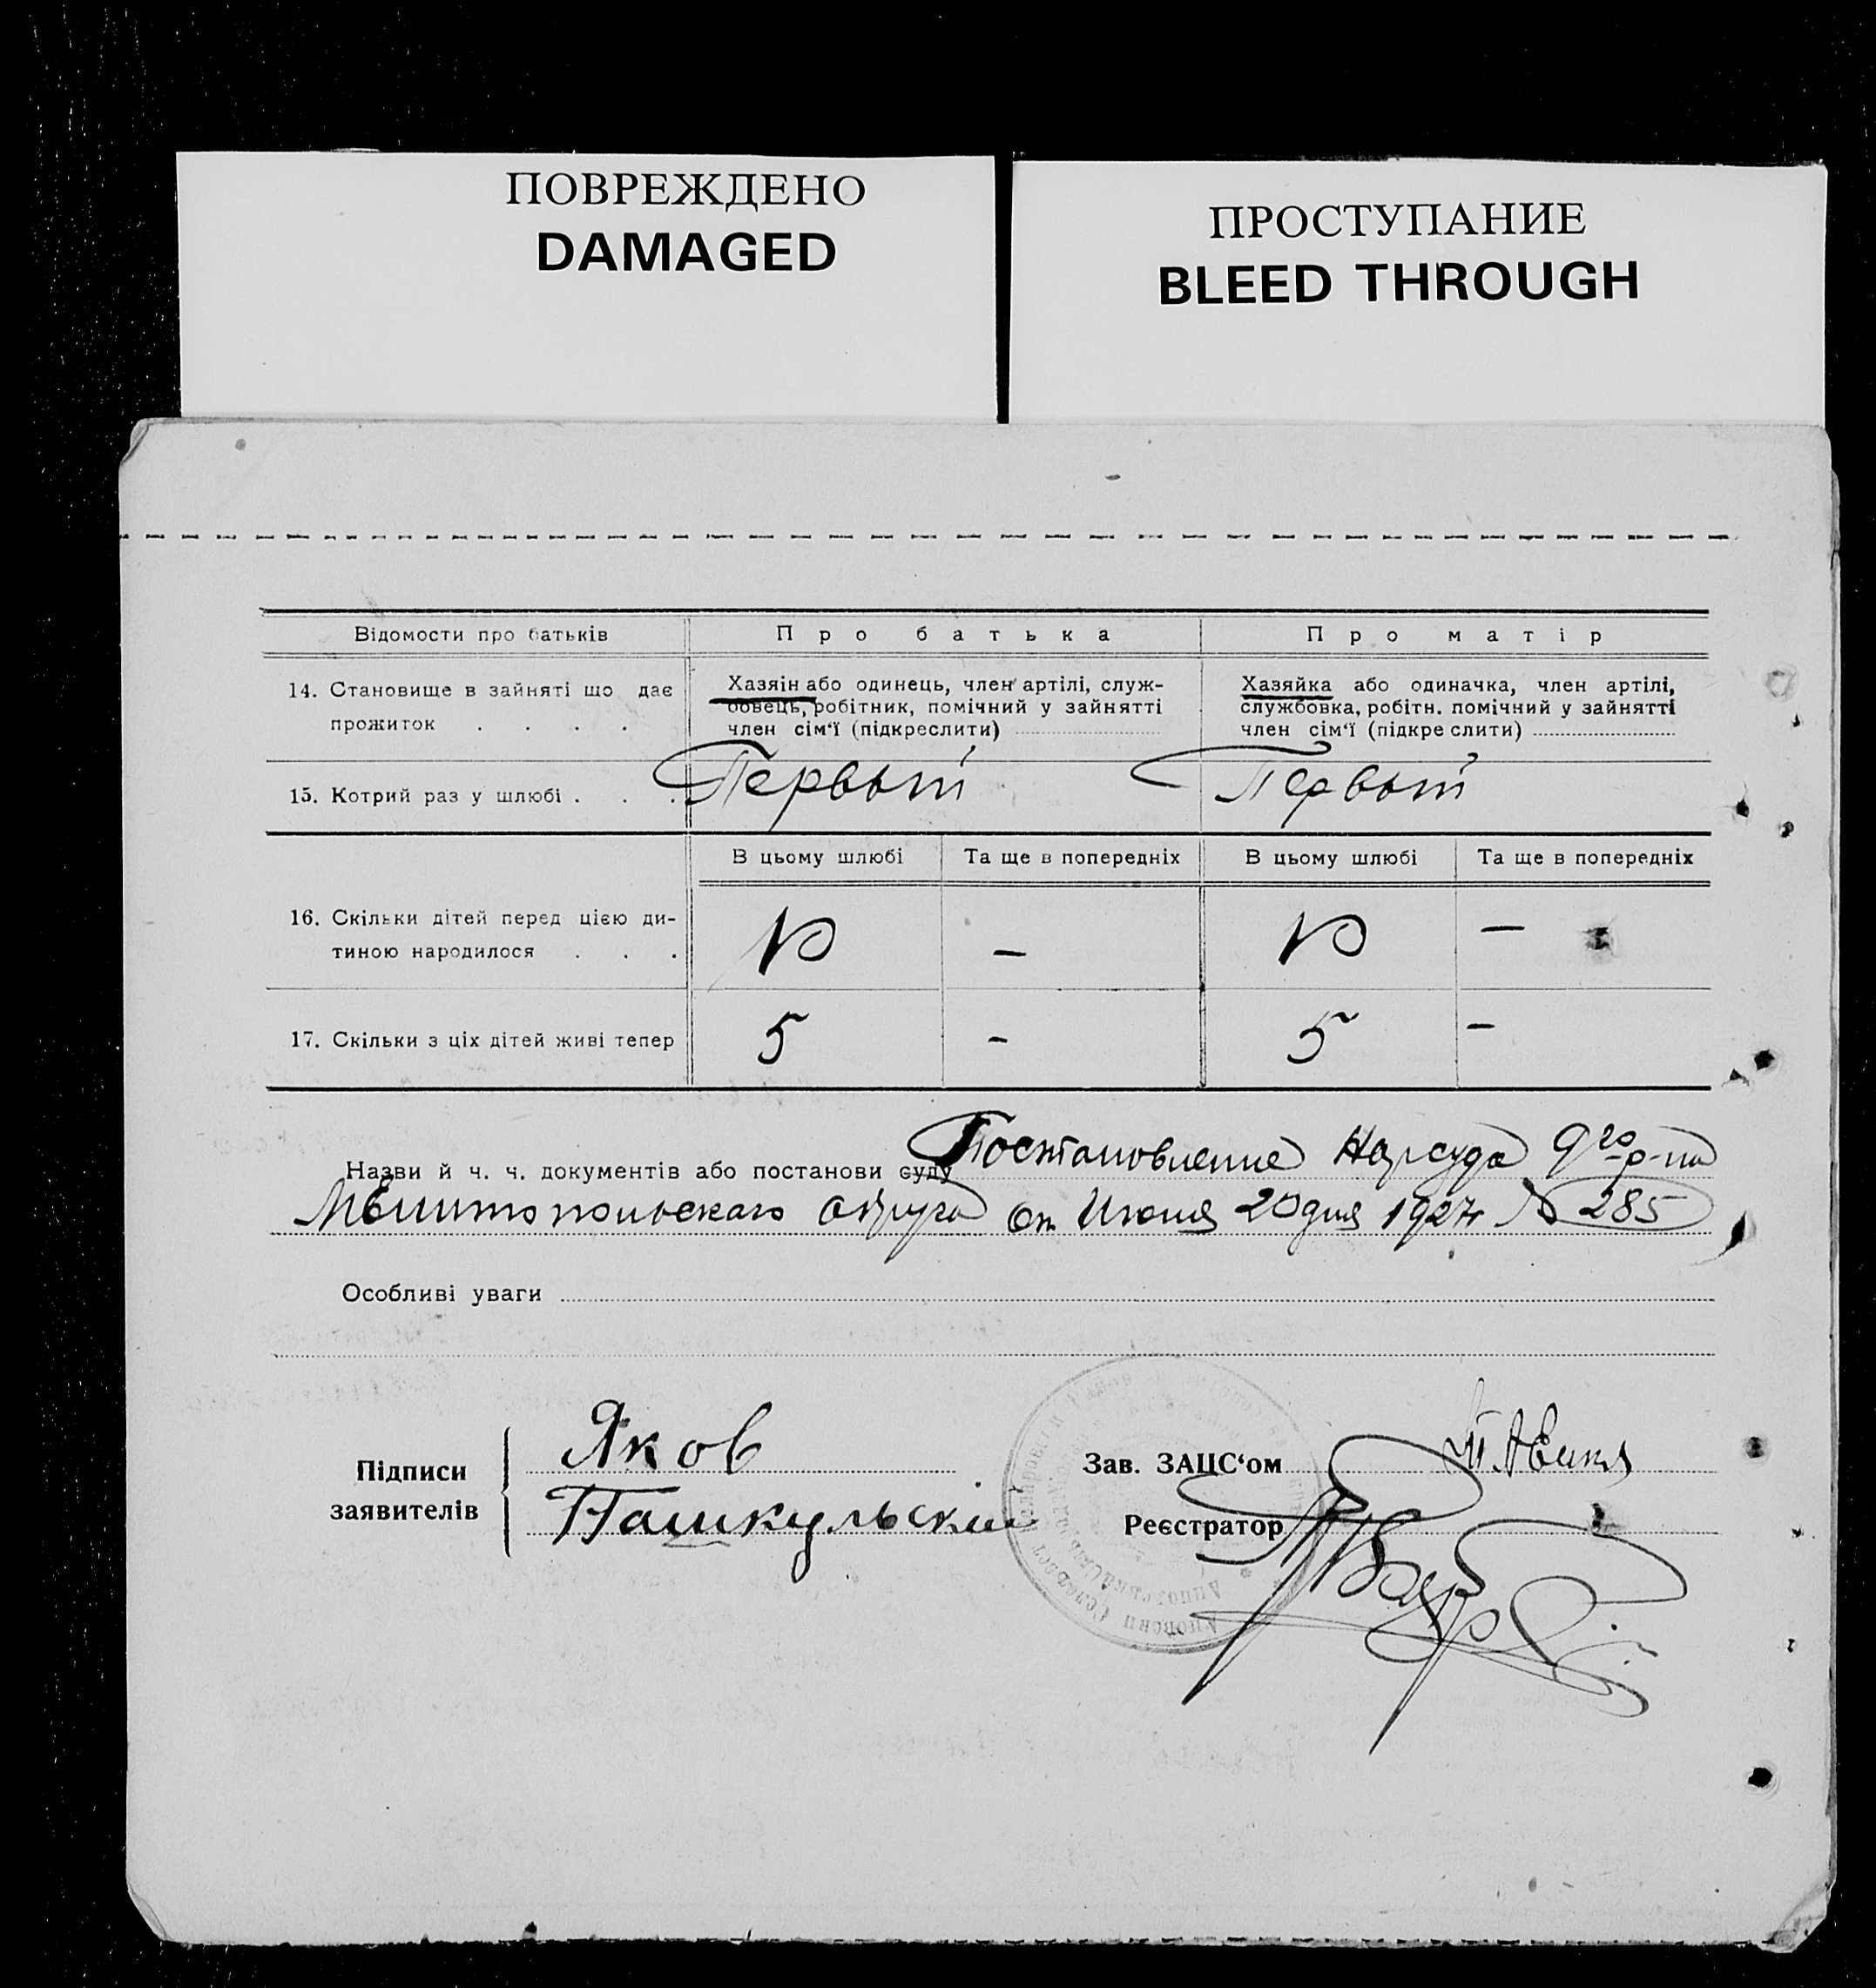 ПОВРЕЖДЕНО
DAMAGED
ПРОСТУПАНИЕ
BLEED THROUGH
Відомости про батьків
Про батька
Про матір
14. Становище в зайняті що дає
прожиток . . . .
Хазяін або одинець, член артілі, служ-
бовець, робітник, помічний у зайнятті
член сім'ї (підкреслити)
Хазяйка або одиначка, член артілі,
службовка, робітн. помічний у зайнятті
член сім'ї (підкреслити)
15. Котрий раз у шлюбі . . .
Первый
Первый
В цьому шлюбі
Та ще в попередніх
В цьому шлюбі
Та ще в попередніх
16. Скільки дітей перед цією ди-
тиною народилося . . .
10
—
10
—
17. Скільки з ціх дітей живі тепер
5
-
5
—
Назви й ч. ч. документів або постанови суду Постановление Нарсуда 9го р-на
Мелитопольскаго округа от Июня 20 дня 1927г № 285
Особливі уваги
Підписи
заявителів
Яков
Пашкульский
Зав. ЗАЦС'ом
Реєстратор